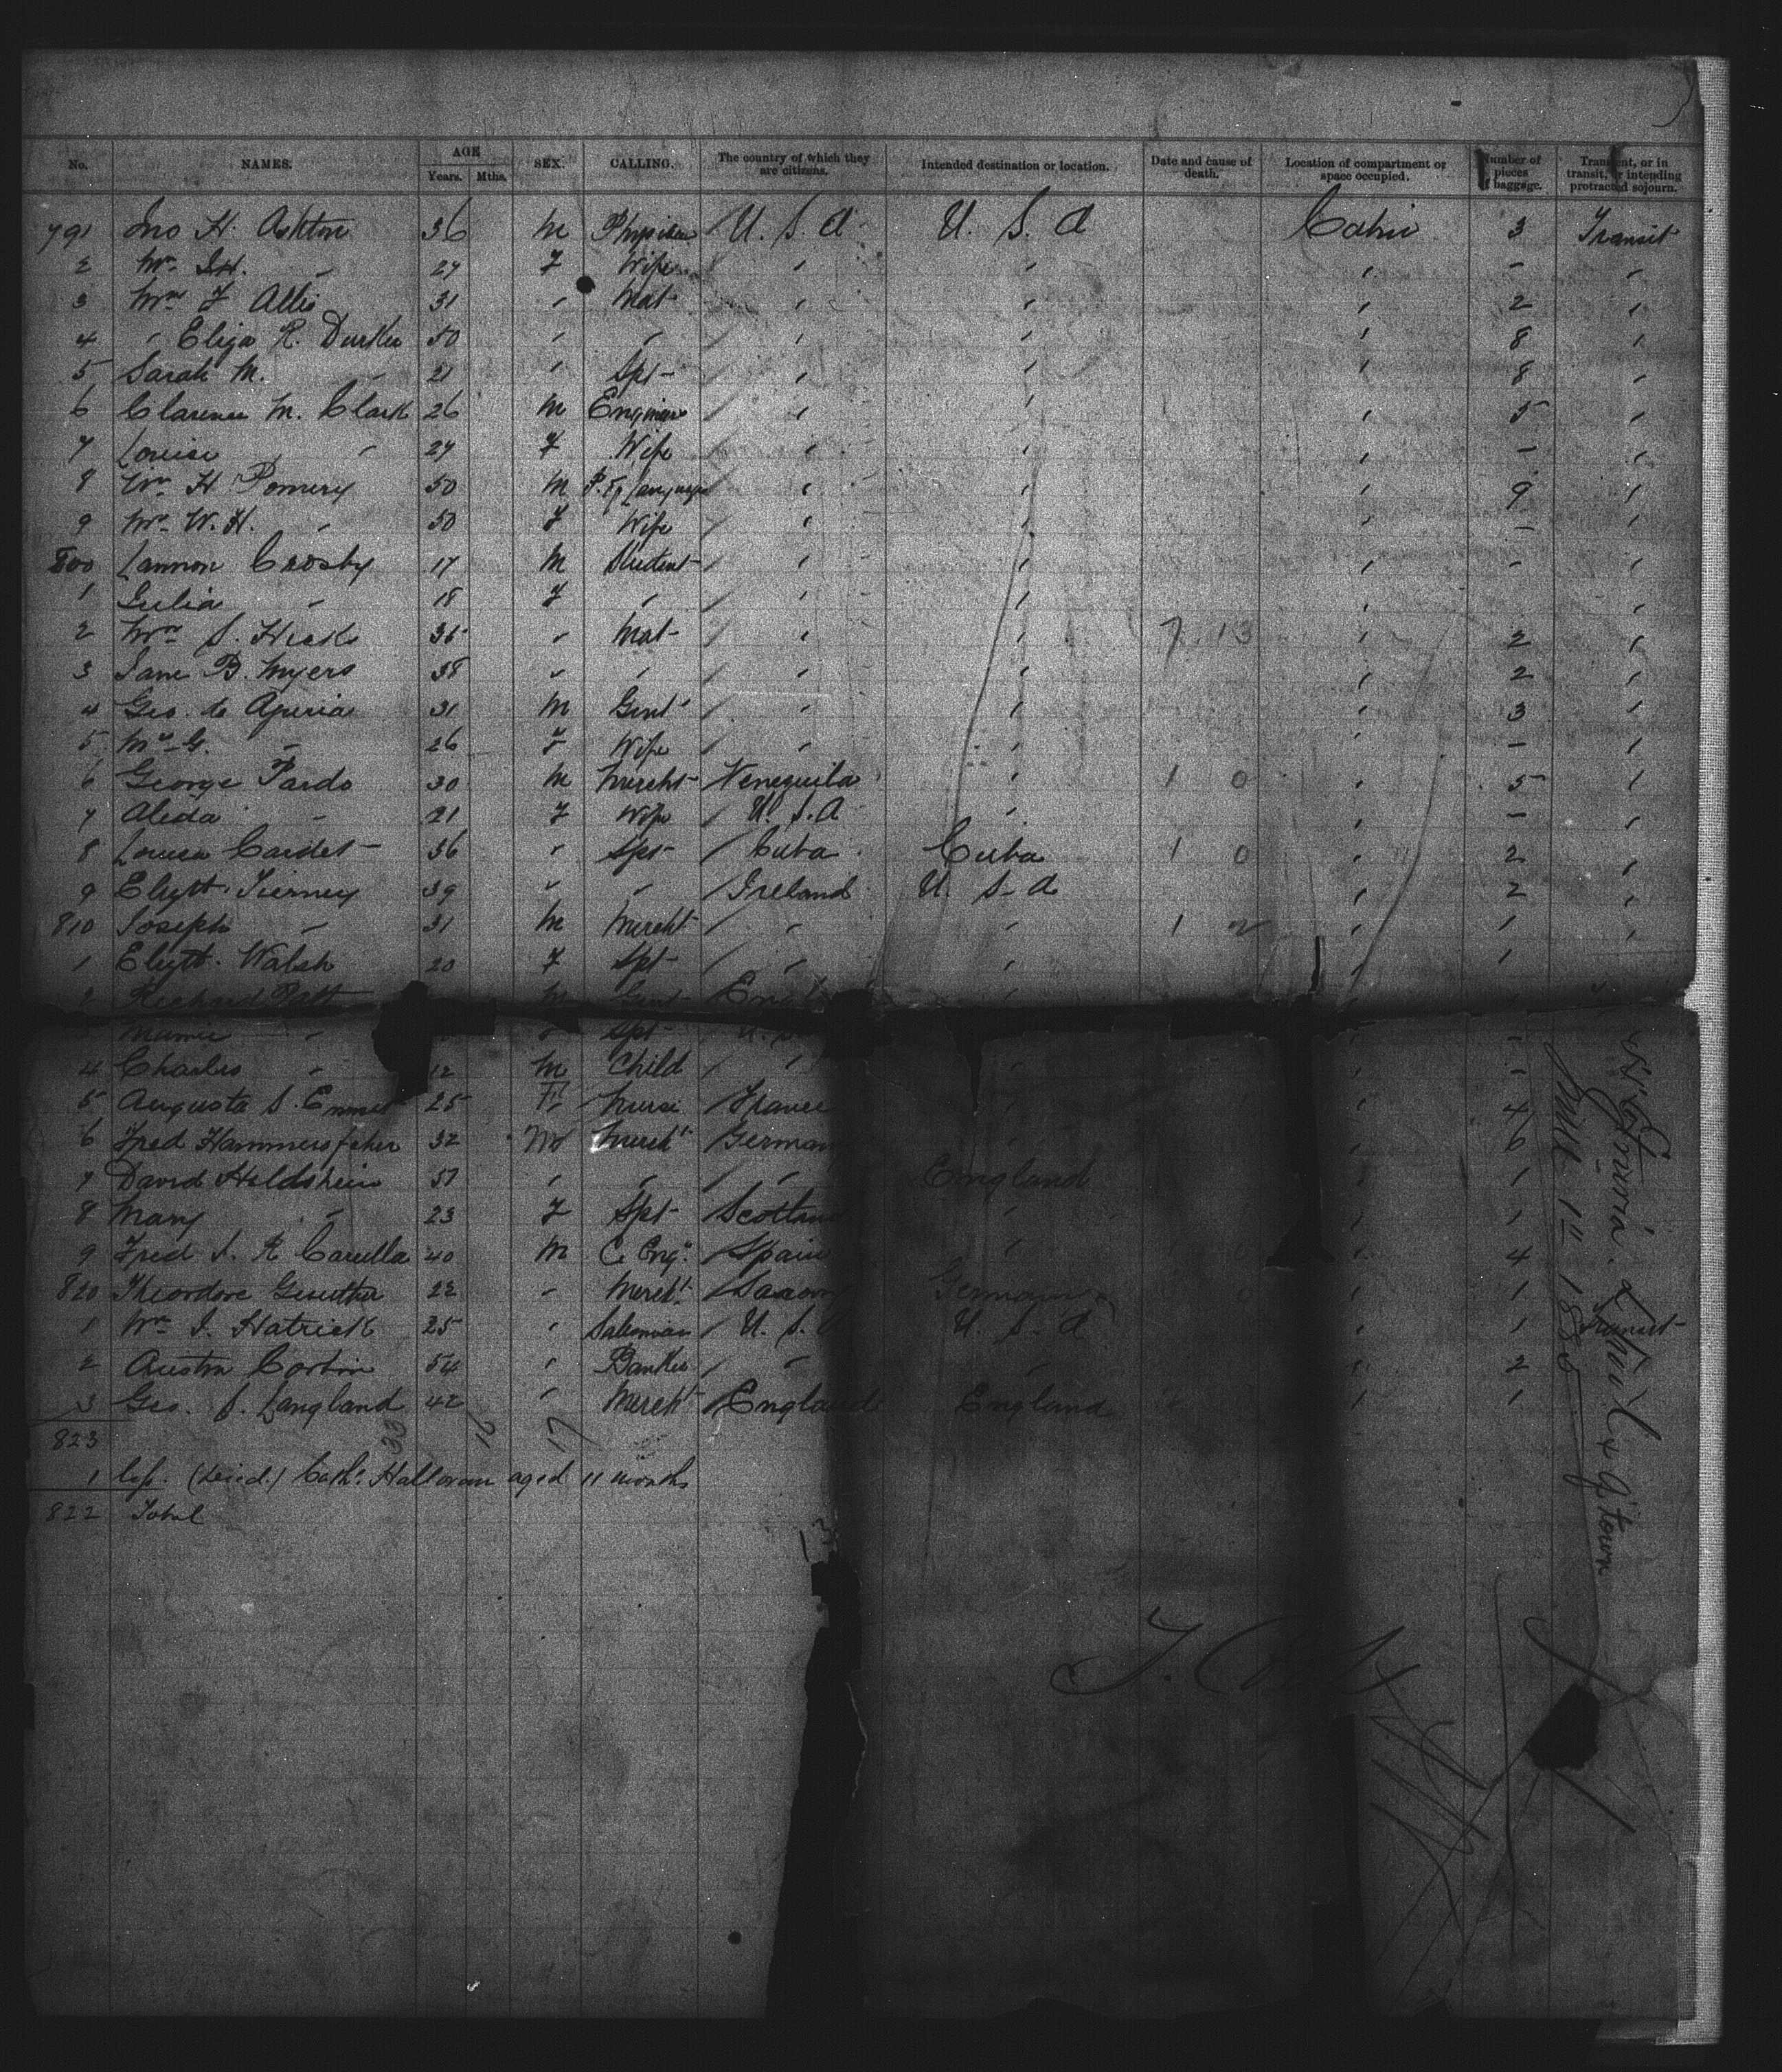 No. NAMES. AGE Years. Mths. SEX. CALLING. The country of which they are citizens. Intended destination or location. Date and cause of death. Location of compartment or space occupied. Number of pieces baggage. Transient, or in transit, or intending protracted sojourn.
791 Jno H. Ashton 36 M Physician U. S. A U. S. A Cabin 3 Transit
2 Mrs J.H. " 27 F Wife " " " - "
3 Mrs F Allis 31 " Mat " " " 2 "
4 " Eliza R. Durkee 50 " " " " " 8 "
5 Sarah M. " 21 " Spt " " " 8 "
6 Clarence M. Clark 26 M Engineer " " " 5 "
7 Louise " 27 F Wife " " " - "
8 Wm H Pomery 50 M " " " 9 "
9 Mrs W. H. " 50 F Wife " " " - "
800 Lannon Crosby 17 M Student " " " - "
1 Julia " 18 F " " " " "
2 Mrs S. Hicks " Mat " " 7. 13 " 2 "
3 Jane B. Myers 38 " " " " " 2 "
4 Geo. de Aperia 31 M Gent " " " 3 "
5 Mrs G. " 26 F Wife " " " - "
6 George Pardo 30 M Mercht Venezuila " 1 0 " 5 "
7 Aleda " 21 F Wife U. S. A " " - "
8 Louisa Cardet 36 " Spt Cuba Cuba 1 0 " 2 "
9 Elizth Tierney 39 " " Ireland U. S. A " 2 "
810 Joseph " 31 M Mercht " " 1 2 " 1 "
1 Elizth Walsh 20 F Spt " " " 1
2 Richard Patt M Gent Eng "
Mamie " Spt U. S. " -
4 Charles " 12 M Child " " " -
5 Augusta S. 25 F Nurse France " 4
6 Fred Hammersfaher 32 M Mercht German " 6
7 David Holdshein 57 " " " England " 1
8 Mary " 23 F Spt Scotland " " 1
9 Fred J. R Carulla 40 M C. Engr. Spain " " 4
820 Theordore Genther 22 " Mercht Saxony Germany " 1
1 Wm J. Hatrick 25 " Salesman U. S. A U. S. A " 1 Transit
2 Austin Corbin 54 " Banker " " " 2
3 Geo. S. Langland 42 " Mercht England England " 1
823
33 21 17
1 less (Died.) Cath. Halloran aged 11 months
822 Total
13
S/S Etruria. L'pool & Q'town
June 1st 1885